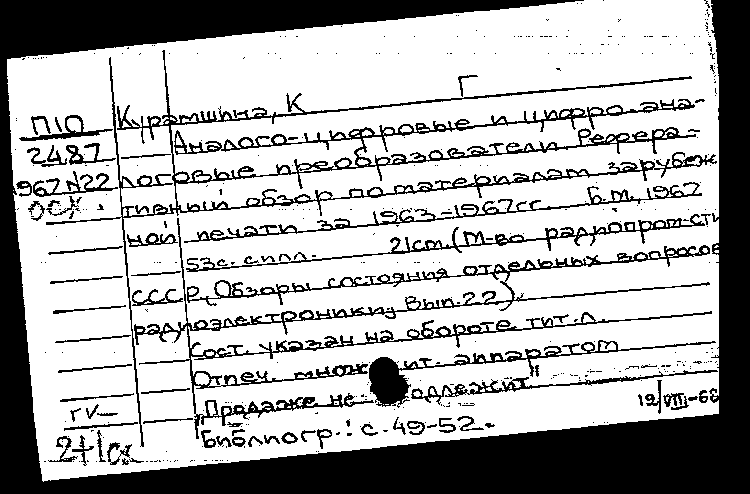 Г
П10 Курамшина, К
2487 Аналого-цифровые и цифро-ана-
967 N22 логовые преобразователи Рефера-
осх. тивный обзор по материалам зарубеж
ной печати за 1963-1967гг. Б.м., 1967
53с. с илл. 21см. (М-во радиопром-сти
СССР. Обзоры состояния отдельных вопросов
радиоэлектроники, Вып.22).
Сост. указан на обороте тит.л.
Отпеч. множит. аппаратом
"Продаже не подлежит"
Библиогр.: с. 49-52.
12/VIII-68
2+1сх